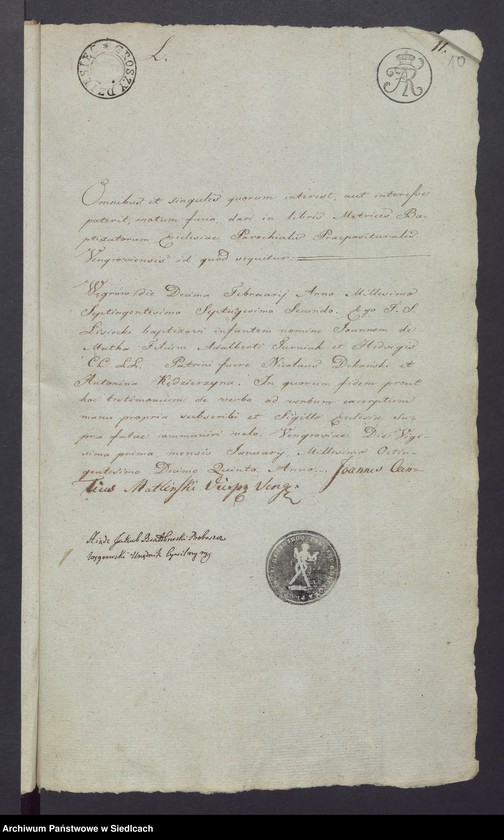 GROSZY DZIESIĘĆ
L.
11.
10
Omnibus et singulis quorum interest, aut interesse
poterit, notum facio, dari in libris Metrices Ba-
ptisatorum Ecclesiae Parochialis Praeposituralis
Vengroviensis id quod sequitur
Węgrów die Decima Februarij Anno Millesimo
Septingentesimo Septuagesimo Secundo. Ego F. S.
Lisiecki baptizavi infantem nomine Joannem de
Matha Filium Adalberti et Hedvigis
CC. LL. Patrini fuere Nicolaus Dekański et
Antonina Kędzierzyna. In quorum fidem prout
hoc testimonium de verbo ad verbum excerptum
manu propria subscribi et Sigillo Ecclesiae su-
pra fatae communiri volo. Vengroviae Die Vige-
sima prima, mensis Januarij Millesimo Octin-
gentesimo Decimo Quinto Anno... Joannes Can-
tius Matliński
Jakub
Urzędnik Cywilny
Archiwum Państwowe w Siedlcach